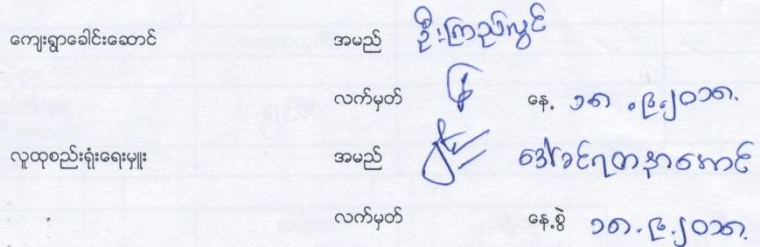 ကျေးရွာခေါင်းဆောင် အမည် ဦးကြည်လွင်
လက်မှတ် နေ့ ၁၈.၆.၂၀၁၈.
လူထုစည်းရုံးရေးမှူး အမည် ဒေါ်ခင်ရတနာအောင်
လက်မှတ် နေ့စွဲ ၁၈.၆.၂၀၁၈.